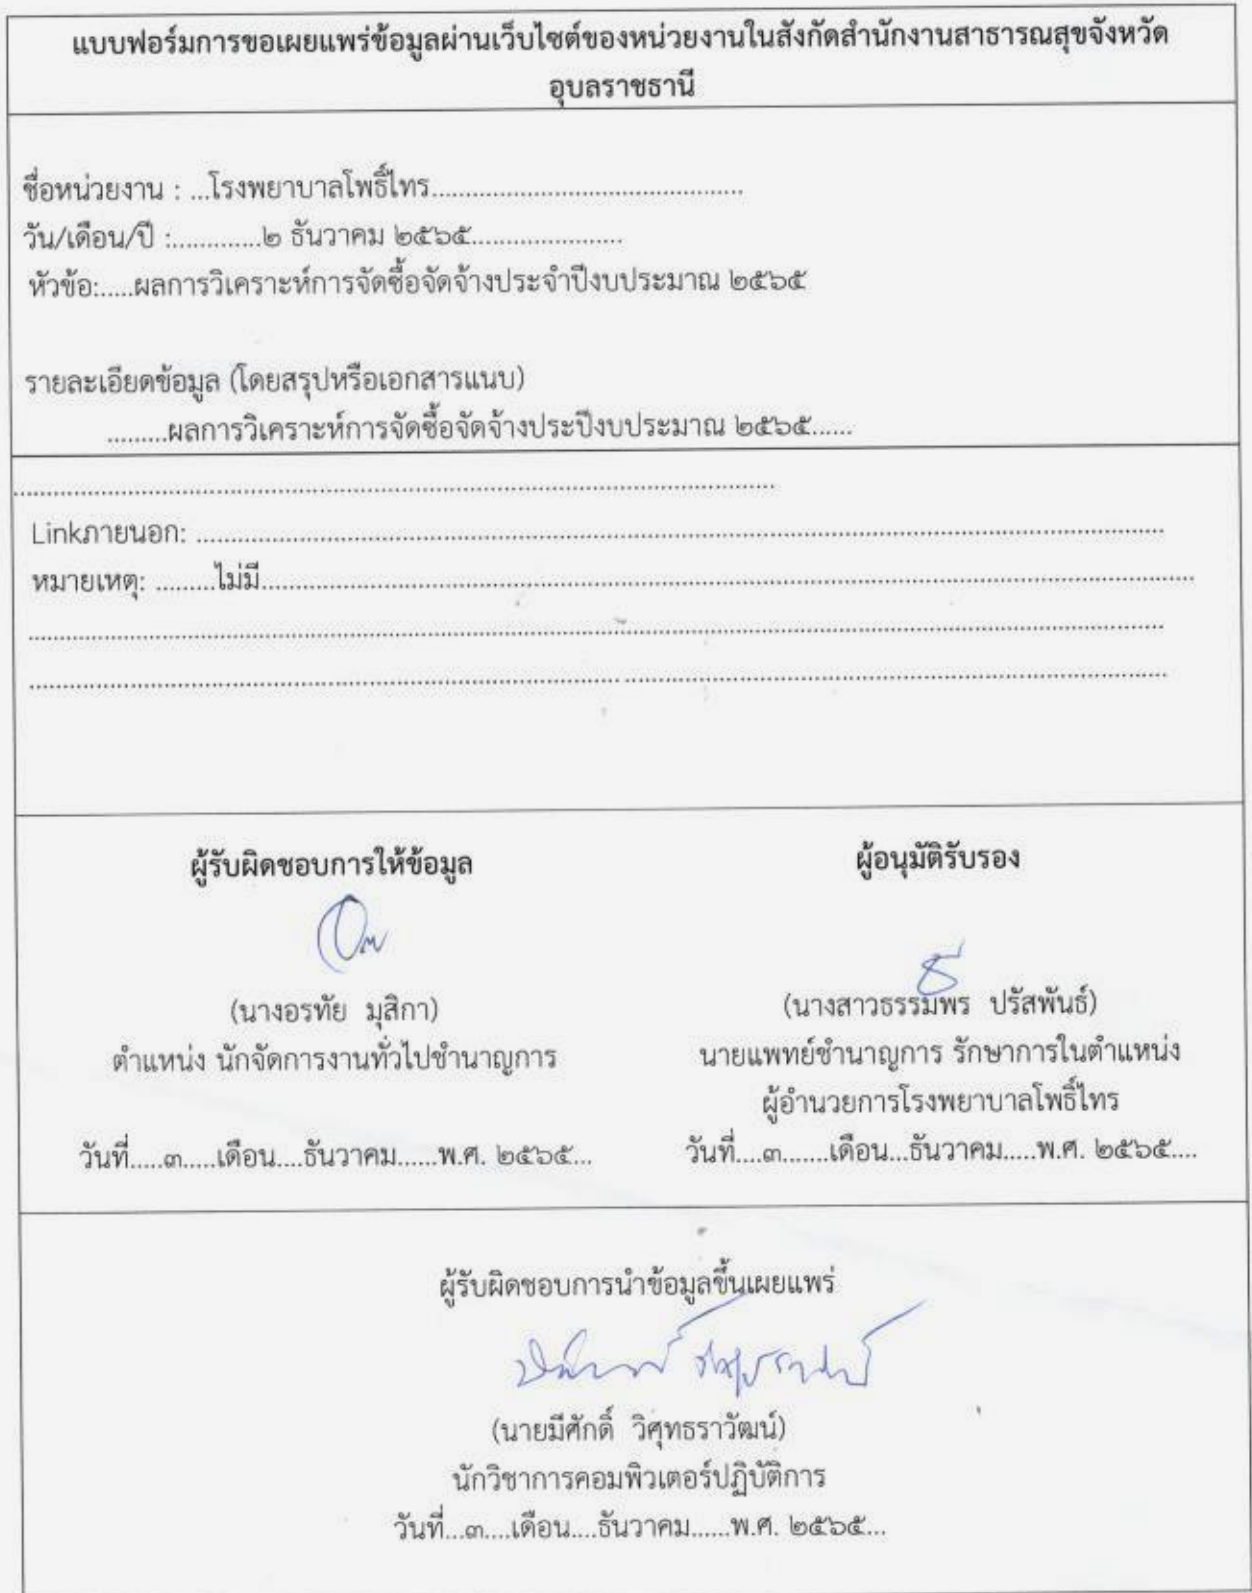 แบบฟอร์มการขอเผยแพร่ข้อมูลผ่านเว็บไซต์ของหน่วยงานในสังกัดสำนักงานสาธารณสุขจังหวัด
อุบลราชธานี
ชื่อหน่วยงาน : ...โรงพยาบาลโพธิ์ไทร...............................................
วัน/เดือน/ปี :.............๒ ธันวาคม ๒๕๖๕.......................
หัวข้อ:.....ผลการวิเคราะห์การจัดซื้อจัดจ้างประจำปีงบประมาณ ๒๕๖๕
รายละเอียดข้อมูล (โดยสรุปหรือเอกสารแนบ)
.........ผลการวิเคราะห์การจัดซื้อจัดจ้างประปีงบประมาณ ๒๕๖๕......
Linkภายนอก: ........................................................................
หมายเหตุ: .........ไม่มี........................................................................
ผู้รับผิดชอบการให้ข้อมูล
(นางอรทัย มุสิกา)
ตำแหน่ง นักจัดการงานทั่วไปชำนาญการ
วันที่.....๓.....เดือน....ธันวาคม......พ.ศ. ๒๕๖๕...
ผู้อนุมัติรับรอง
(นางสาวธรรมพร ปรัสพันธ์)
นายแพทย์ชำนาญการ รักษาการในตำแหน่ง
ผู้อำนวยการโรงพยาบาลโพธิ์ไทร
วันที่....๓.......เดือน...ธันวาคม.....พ.ศ. ๒๕๖๕....
ผู้รับผิดชอบการนำข้อมูลขึ้นเผยแพร่
(นายมีศักดิ์ วิศุทธราวัฒน์)
นักวิชาการคอมพิวเตอร์ปฏิบัติการ
วันที่...๓....เดือน....ธันวาคม......พ.ศ. ๒๕๖๕...